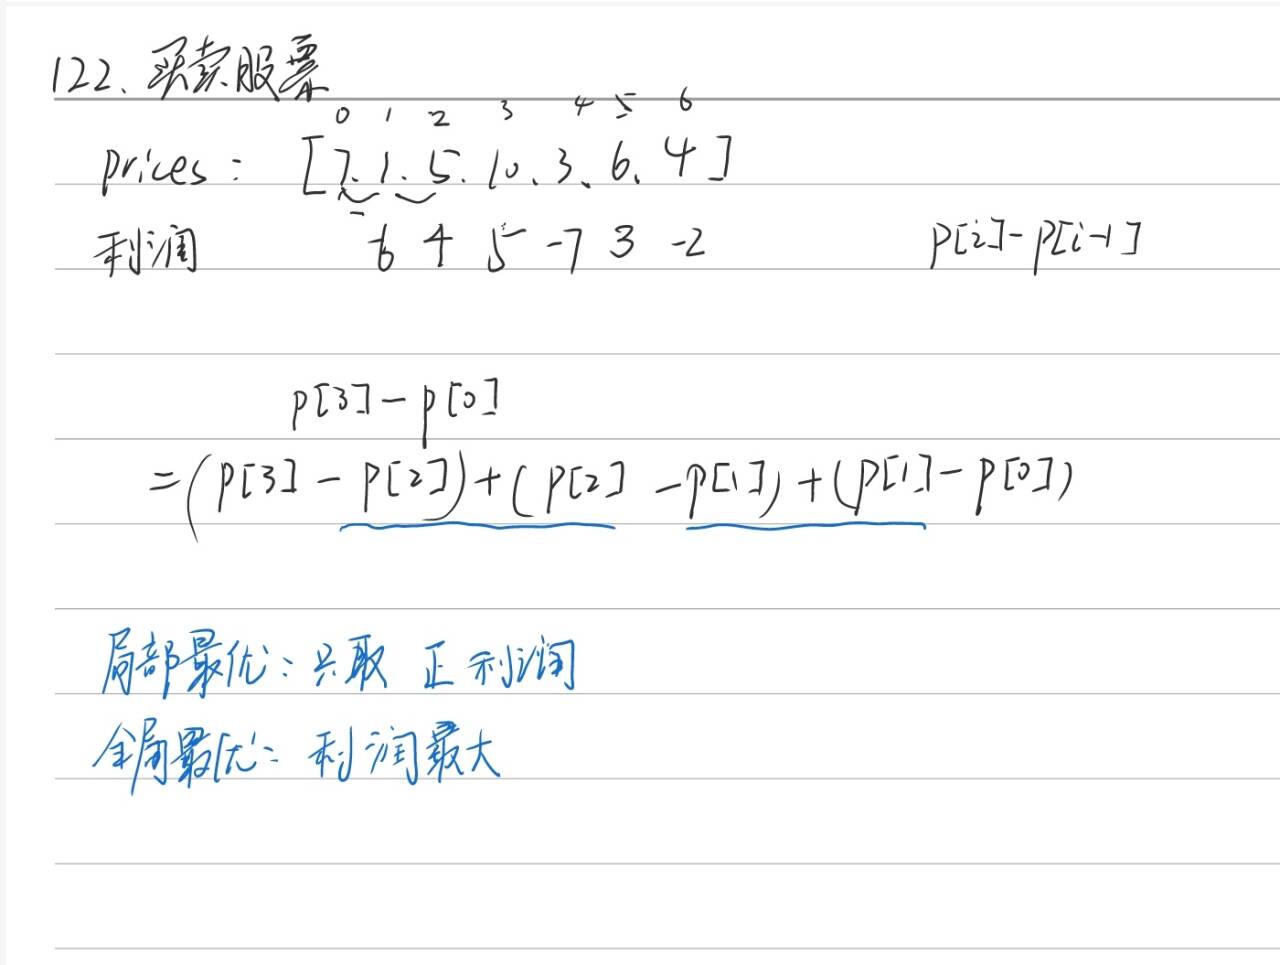 122、买卖股票
0 1 2 3 4 5 6
prices： [7. 1. 5. 10、3、6、4]
利润 -6 4 5 -7 3 -2 P[i]-P[i-1]
P[3]-P[0]
=(P[3]-P[2])+(P[2]-P[1])+(P[1]-P[0])
局部最优：只取 正利润
全局最优：利润最大